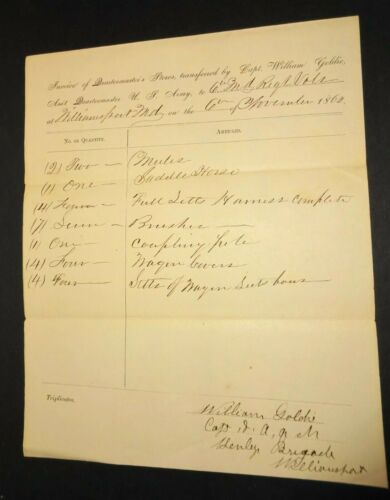 Invoice of Quartermaster's Stores, transferred by Capt. William Goldie,
Asst Quartermaster U. S. Army, to 6th Md Regt Vols
at Williamsport Md, on the 6th of November 1862.
No. or Quantity. Articles.
(2) Two — Mules
(1) One — Saddle Horse
(4) — Full Setts Harness complete
(7) — Brushes
(1) One — Coupling pole
(4) Four — Wagon Covers
(4) Four — Setts of Wagon
Triplicate.
William Goldie
Capt & A. Q M
Brigade
Williamsport